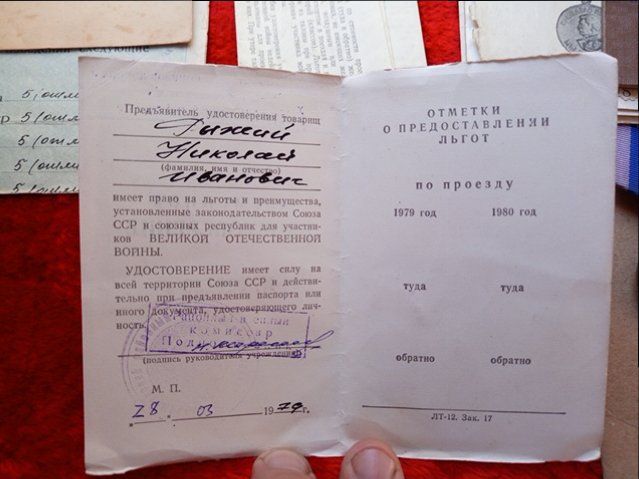 5 (отм
5 (отм
5 (отм
5 (отм
5 (отм
Предъявитель удостоверения товарищ
Рыжий
Николай
(фамилия, имя и отчество)
Иванович
имеет право на льготы и преимущества,
установленные законодательством Союза
ССР и союзных республик для участни-
ков ВЕЛИКОЙ ОТЕЧЕСТВЕННОЙ
ВОЙНЫ.
УДОСТОВЕРЕНИЕ имеет силу на
всей территории Союза ССР и действи-
тельно при предъявлении паспорта или
иного документа, удостоверяющего лич-
ность.
комиссар
(подпись руководителя учреждения)
М. П.
28 03 1979 г.
ОТМЕТКИ
О ПРЕДОСТАВЛЕНИИ
ЛЬГОТ
по проезду
1979 год 1980 год
туда туда
обратно обратно
ЛТ-12. Зак. 17